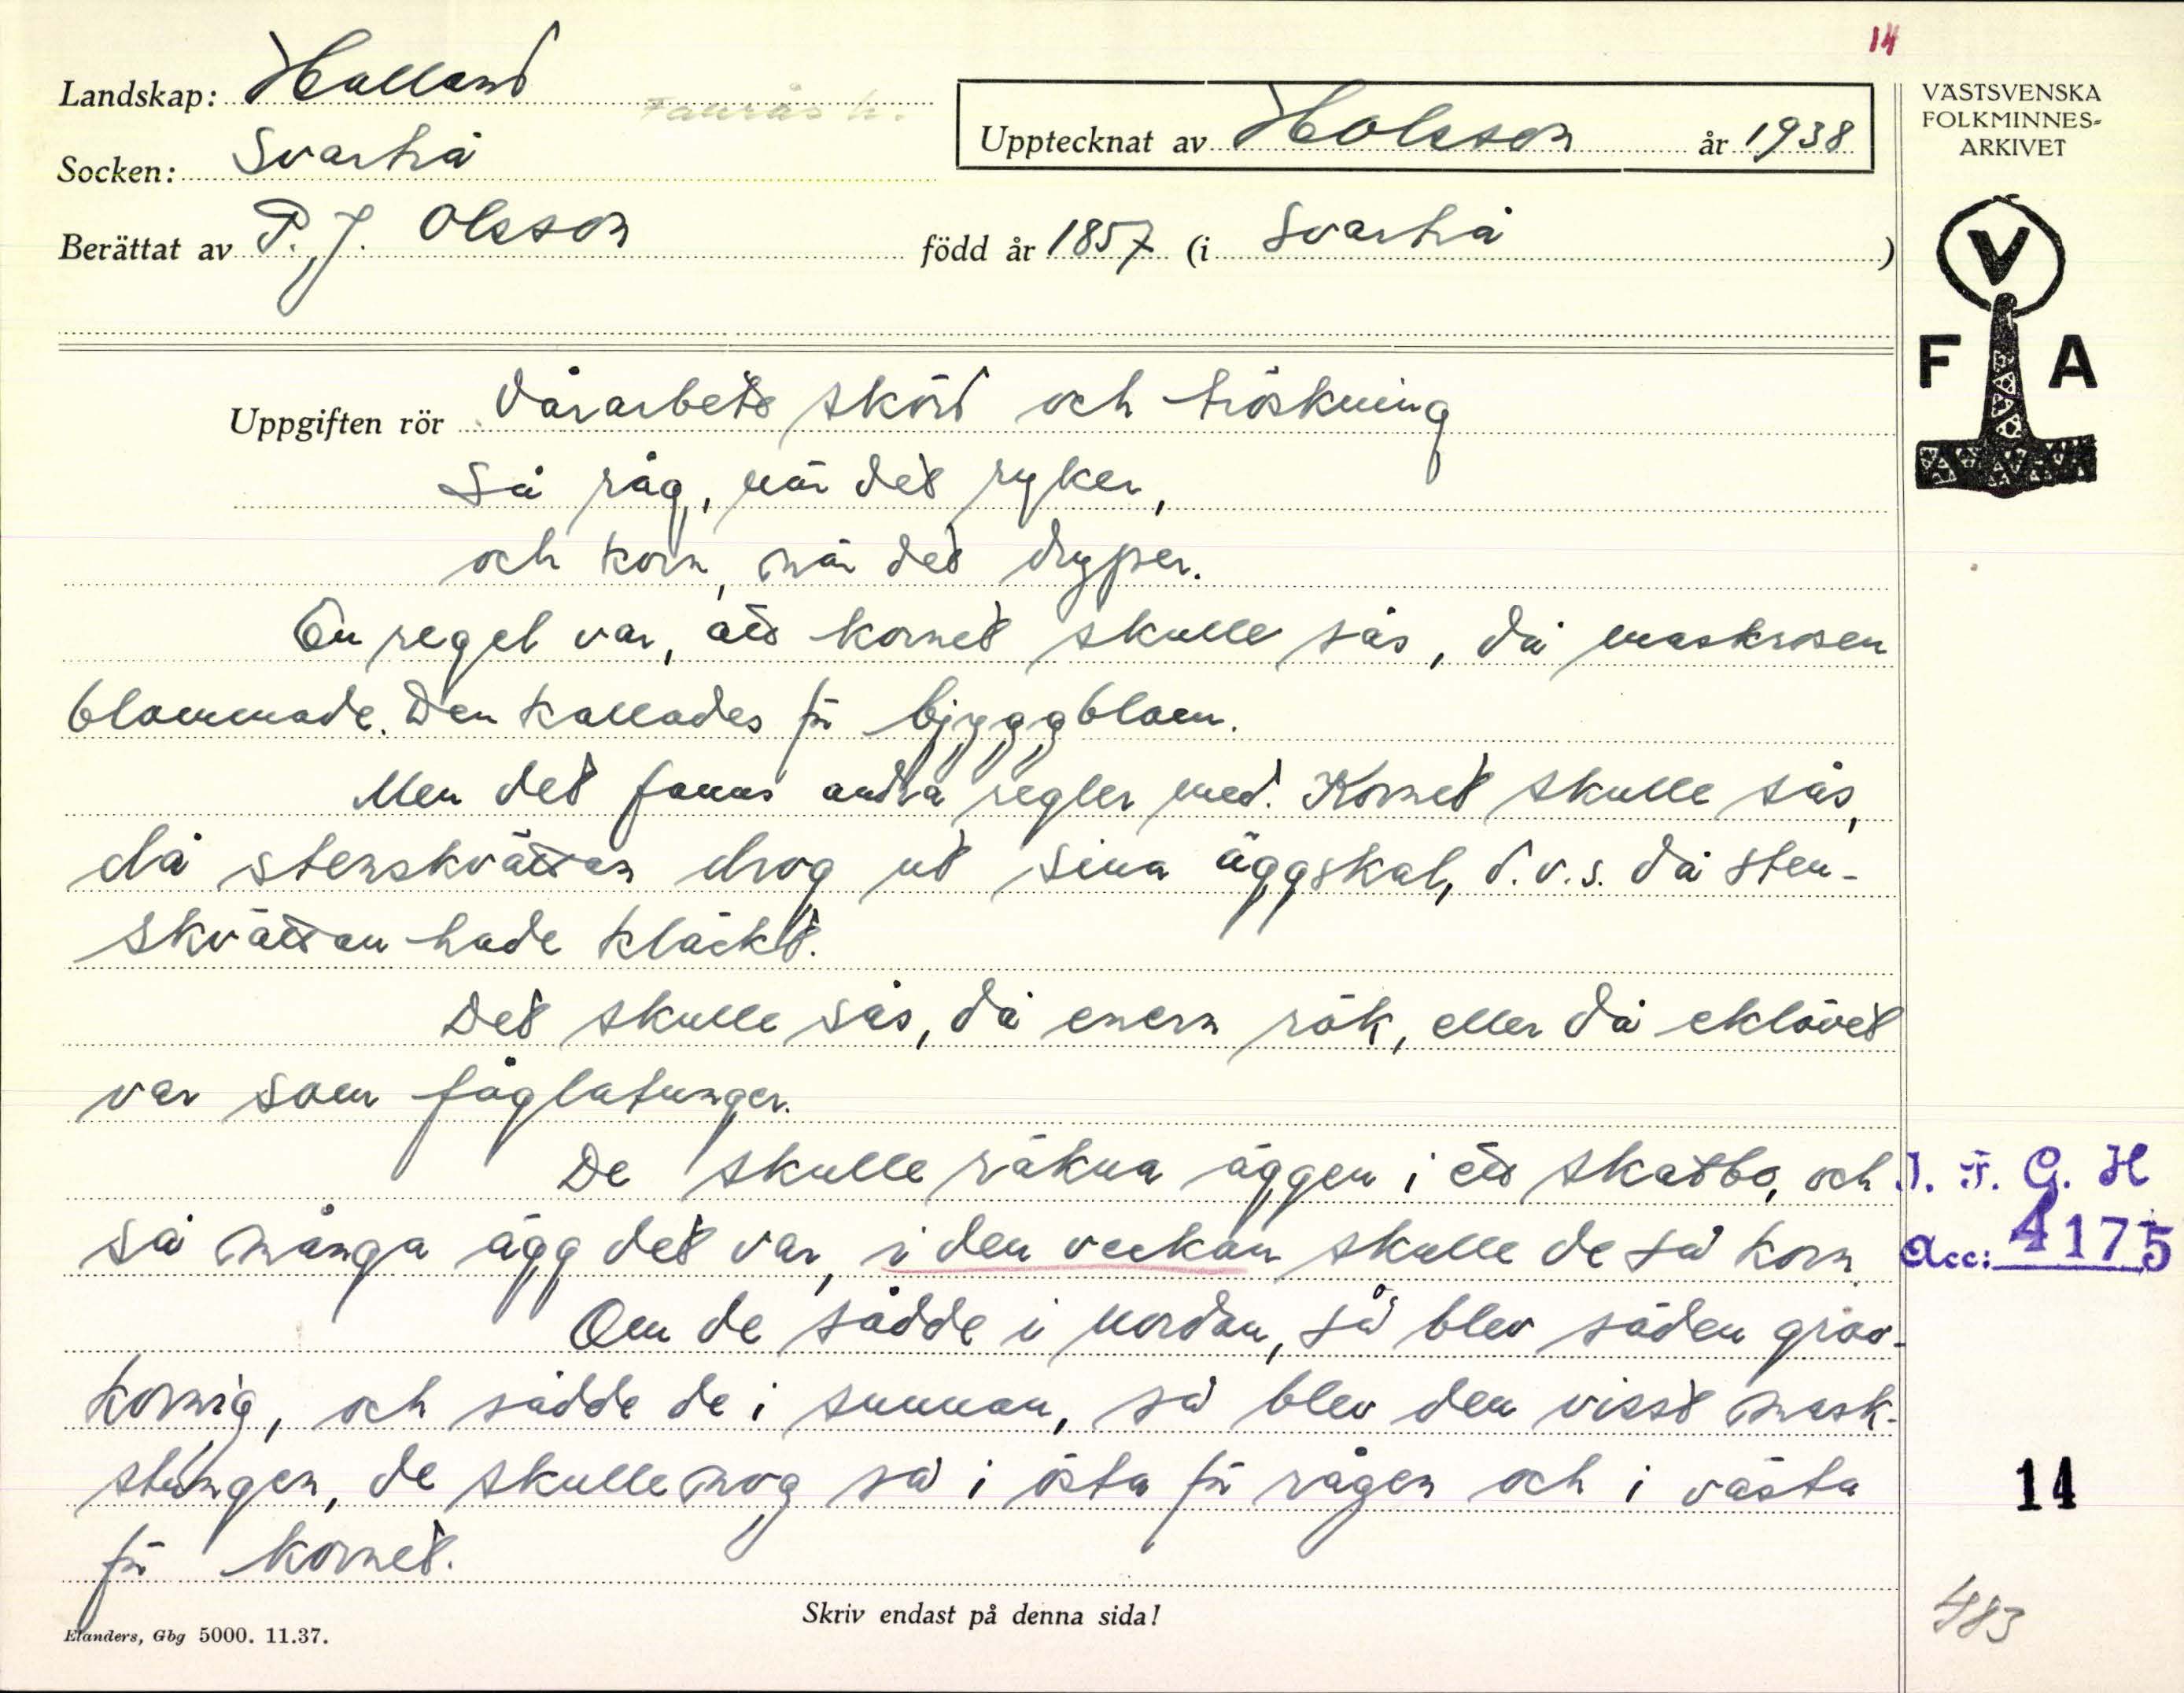 14
Landskap: Halland Faurås h.
Upptecknat av H Olsson år 1938
Socken: Svartrå
Berättat av P. J. Olsson född år 1857 (i Svartrå )
VÄSTSVENSKA
FOLKMINNES-
ARKIVET
V
F A
Uppgiften rör Vårarbete skörd och tröskning
Så råg, när det ryker,
och korn, när det dryper.
En regel var, att kornet skulle sås, då maskrosen
blommade. Den kallades för bjyggblom.
Men det fanns andra regler med. Kornet skulle sås,
då stenskvättan drog ut sina äggskal, d.v.s. då sten-
skvättan hade kläckt.
Det skulle sås, då enern rök, eller då eklövet
var som fåglatungen.
De skulle räkna äggen i ett skatbo, och
så många ägg det var, i den veckan skulle de så korn.
Om de sådde i nordan, så blev säden grov-
kornig, och sådde de i sunnan, så blev den visst mask-
stungen, de skulle nog så i östa för rågen och i västa
för kornet.
I. F. G. H
Acc: 4175
14
483
Skriv endast på denna sida!
Elanders, Gbg 5000. 11.37.